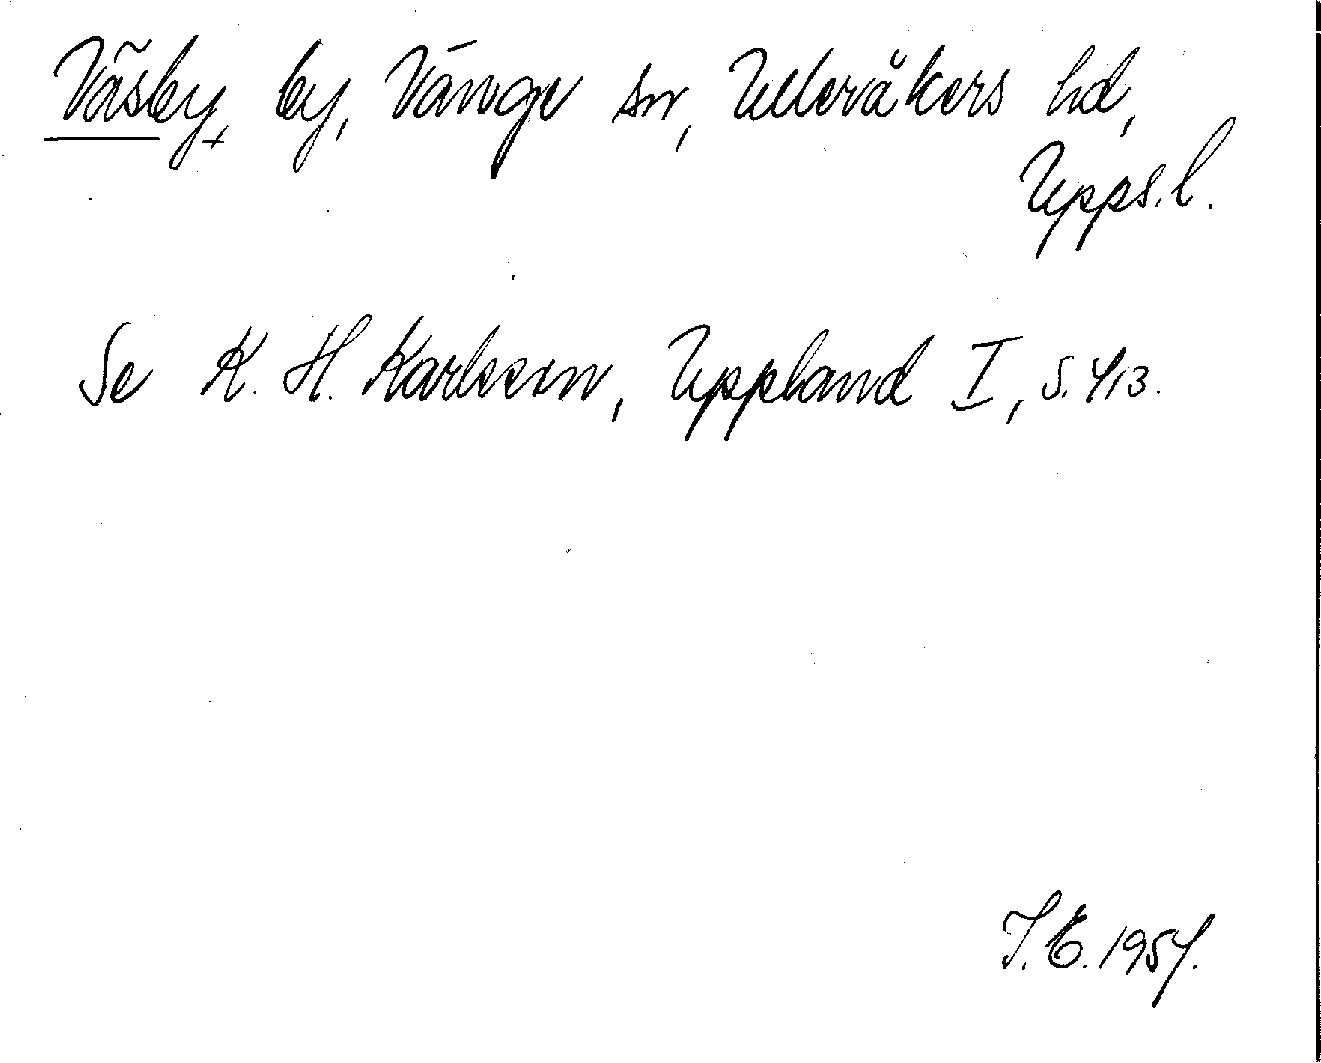 Väsby, by, Vänge sn, Ulleråkers hd,
Upps.l.
Se K. H. Karlsson, Uppland I, s. 413.